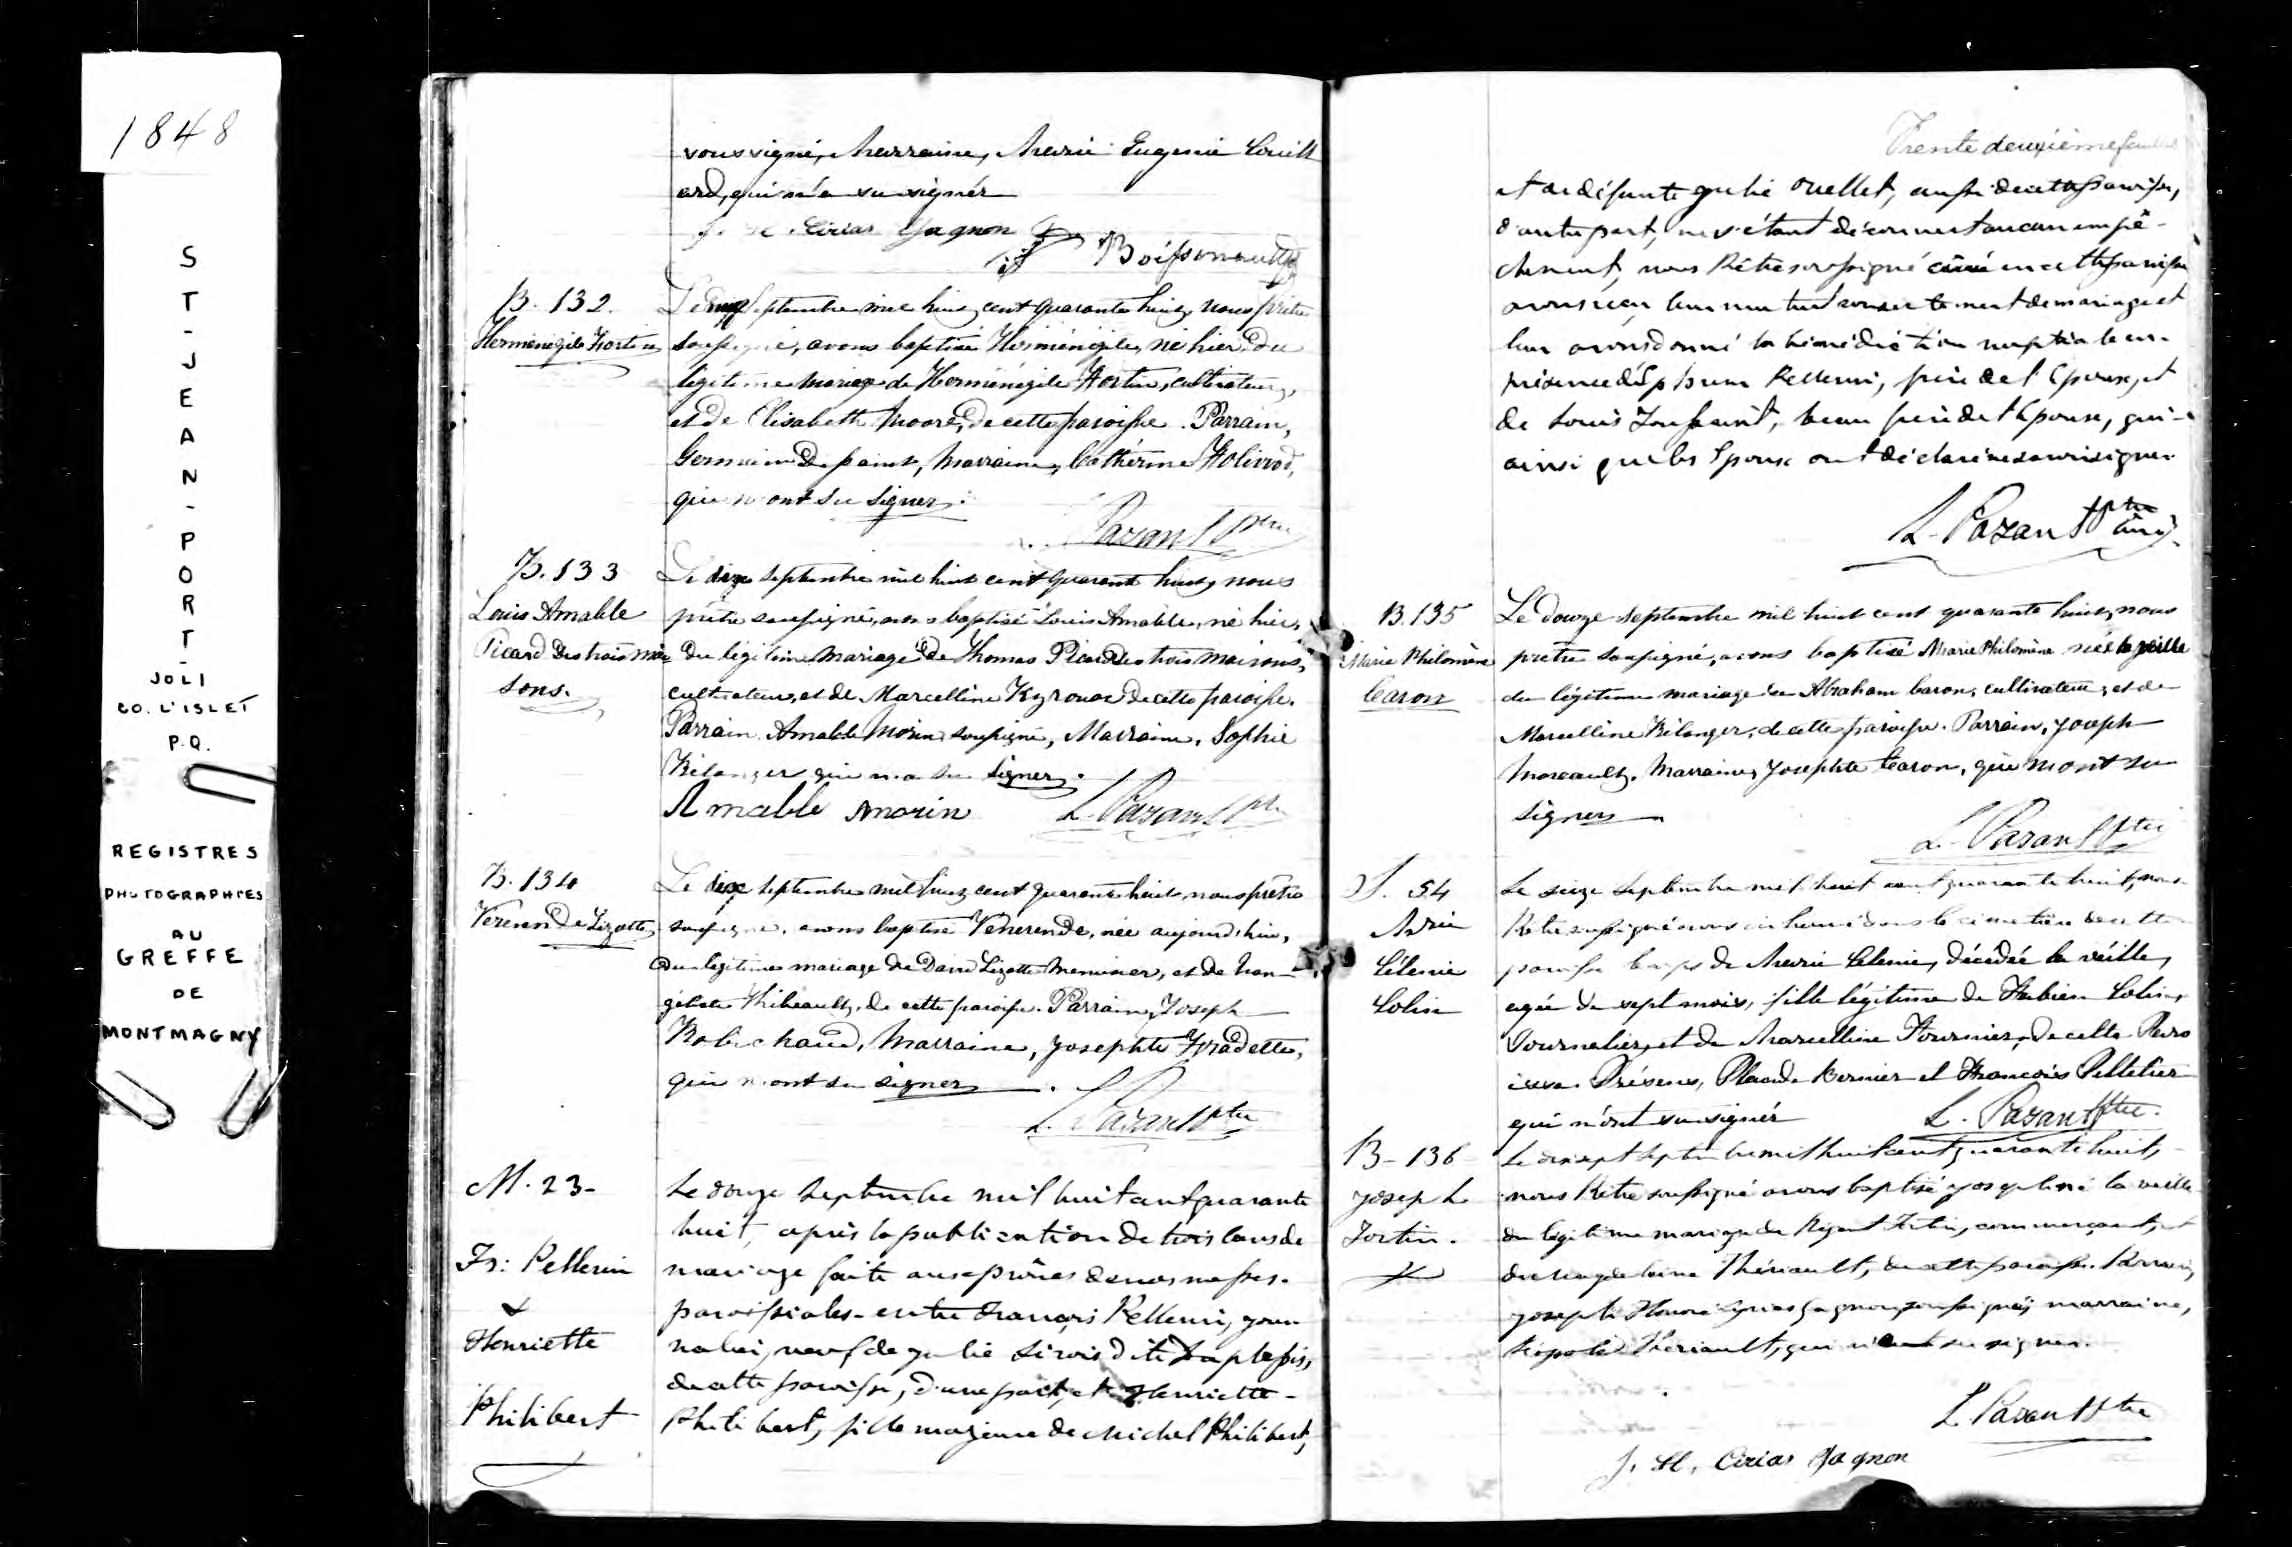 1848
ST-JEAN-PORT-
JOLI
CO. L'ISLET
P.Q.
REGISTRES
PHOTOGRAPHIES
AU
GREFFE
DE
MONTMAGNY
soussigné, Marraine, Marie Eugenie Couill
ard, qui n'a su signér
J. H. Cirias Gagnon Boissonnault
B. 132.
Herménégile Fortin
septembre mil huit cent quarante huit, nous prêtre
soussigné, avons baptisé Herménégile, né hier, du
légitime mariage de Herménégile Fortin, cultivateur,
et de Elisabeth Moore, de cette paroisse. Parrain,
Germain Marraine, Cathérine
qui n'ont su signer.
L. Parant Ptre
B. 133
Louis Amable
Picard Destrois mai
sons.
Le dix septembre mil huit cent quarant huit, nous
prêtre soussigné, avons baptisé Louis Amable, né hier,
du légitime mariage de Thomas Picard Destrois maisons,
cultivateur, et de Marcelline Kyrouac de cette paroisse.
Parrain Amable Morin soussigné, Marraine, Sophie
Bélanger qui n'a su signer.
Amable Morin L. Parant Ptre
B. 134
Vénérende Lizotte
Le dix septembre mil huit cent quarante huit, nous prêtre
soussigné, avons baptisé Vénérende, née aujourd'hui,
du légitime mariage de David Lizotte Menuisier, et de
Thibeault, de cette paroisse. Parrain, Joseph
Robichaud, Marraine, Josephte Fradette,
qui n'ont su signer.
L. Parant Ptre
M. 23-
Fs: Pellerin
&
Henriette
Philibert
Le douze septembre mil huit cent quarante
huit, après la publication de trois bans de
mariage faite aux prônes de nos messes
paroissiales - entre François Pellerin, jour
nalier, veuf de Julie Sirois dite Duplessis,
de cette paroisse, d'une part, et Henriette
Philibert, fille majeure de Michel Philibert,
Trente deuxième feuillet
et de défunte Julie Ouellet, aussi de cette paroisse,
d'autre part, ne s'étant découvert aucun empê-
chement, nous Prêtre soussigné curé en cette paroisse
avons reçu leur mutuel consentement de mariage et
leur avons donné la bénédiction nuptiale en
présence de Pellerin, père de l'Epoux, et
de Louis Toussaint, beau frère de l'Epouse, qui
ainsi que les Epoux ont déclaré ne savoir signer.
L. Parant Ptre Curé.
B. 135
Marie Philomène
Caron
Le douze septembre mil huit cent quarante huit, nous
prêtre soussigné, avons baptisé Marie Philomène née la veille
du légitime mariage de Abraham Caron, cultivateur, et de
Marcelline Bélanger, de cette paroisse. Parrain, Joseph
Moreault, Marraine, Josephte Caron, qui n'ont su
signer
L. Parant Ptre
S. 54
Marie
Célenie
Colin
Le seize septembre mil huit cent quarante huit, nous
Prêtre soussigné avons inhumé dans le cimetière de cette
paroisse le corps de Marie Célenie, décédée la véille,
agée de sept mois, fille légitime de Fabien Colin,
Journalier, et de Marcelline Fournier, de cette Paro
isse. Présens, Placide Bernier et Francois Pelletier
qui n'ont su signér L. Parant Ptre.
B- 136
Joseph
Fortin.
Le dix sept septembre mil huit cent quarante huit,
nous Prêtre soussigné avons baptisé Joseph né la veille
du légitime mariage de Fortin, commerçant, et
de Magdeleine Thériault, de cette paroisse. Parrain,
Joseph Honoré Cyrias Gagnon soussigné, marraine,
Thériault, qui n'a su signer.
L. Parant Ptre
J. H. Cirias Gagnon